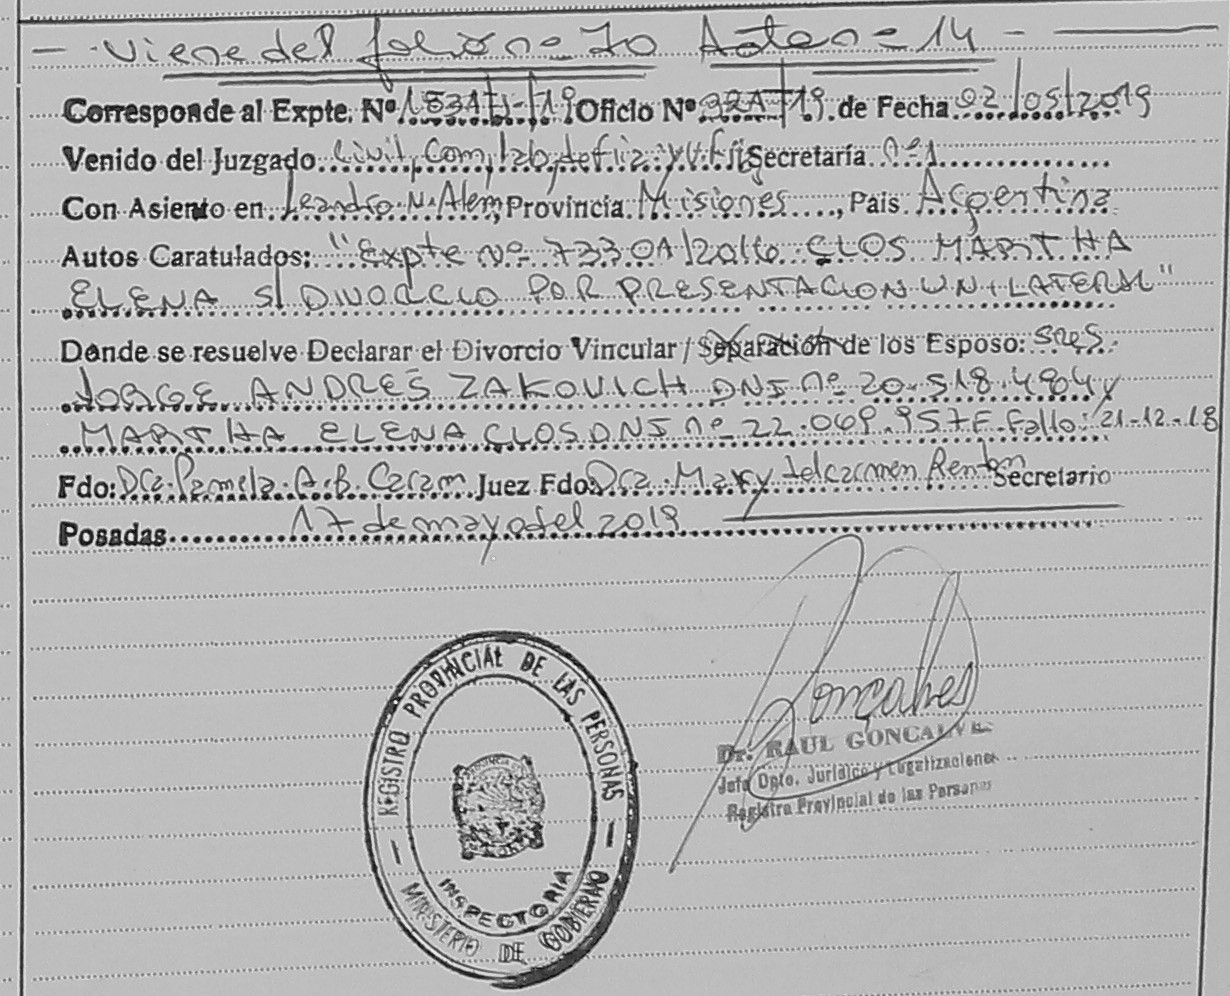 - Viene del folio nº 70 Acta nº 14 -
Corresponde al Expte. Nº 1531-J-19 Oficio Nº 321/19 de Fecha 02/05/2019
Venido del Juzgado Civil, Com, Lab, de fliz. y V.F. Secretaría nº 1
Con Asiento en Leandro N. Alem, Provincia Misiones, Pais Argentina
Autos Caratulados: "Expte Nº 73301/2016 CLOS MARTHA
ELENA S/ DIVORCIO POR PRESENTACION UNILATERAL"
Donde se resuelve Declarar el Divorcio Vincular / Separación de los Esposo: sres
JORGE ANDRES ZAKOVICH DNI nº 20.518.490 y
MARTHA ELENA CLOS DNI nº 22.069.957 F. Fallo: 21-12-18
Fdo: Dra. Pamela A.B. Caram Juez Fdo: Dra. Mary del carmen Secretario
Posadas 17 de mayo del 2019
REGISTRO PROVINCIAL DE LAS PERSONAS
INSPECTORIA
MINISTERIO DE GOBIERNO
Gonçalves
Dr. RAUL GONCALVES
Jefe Dpto. Jurídico y Legalizaciones
Registro Provincial de las Personas